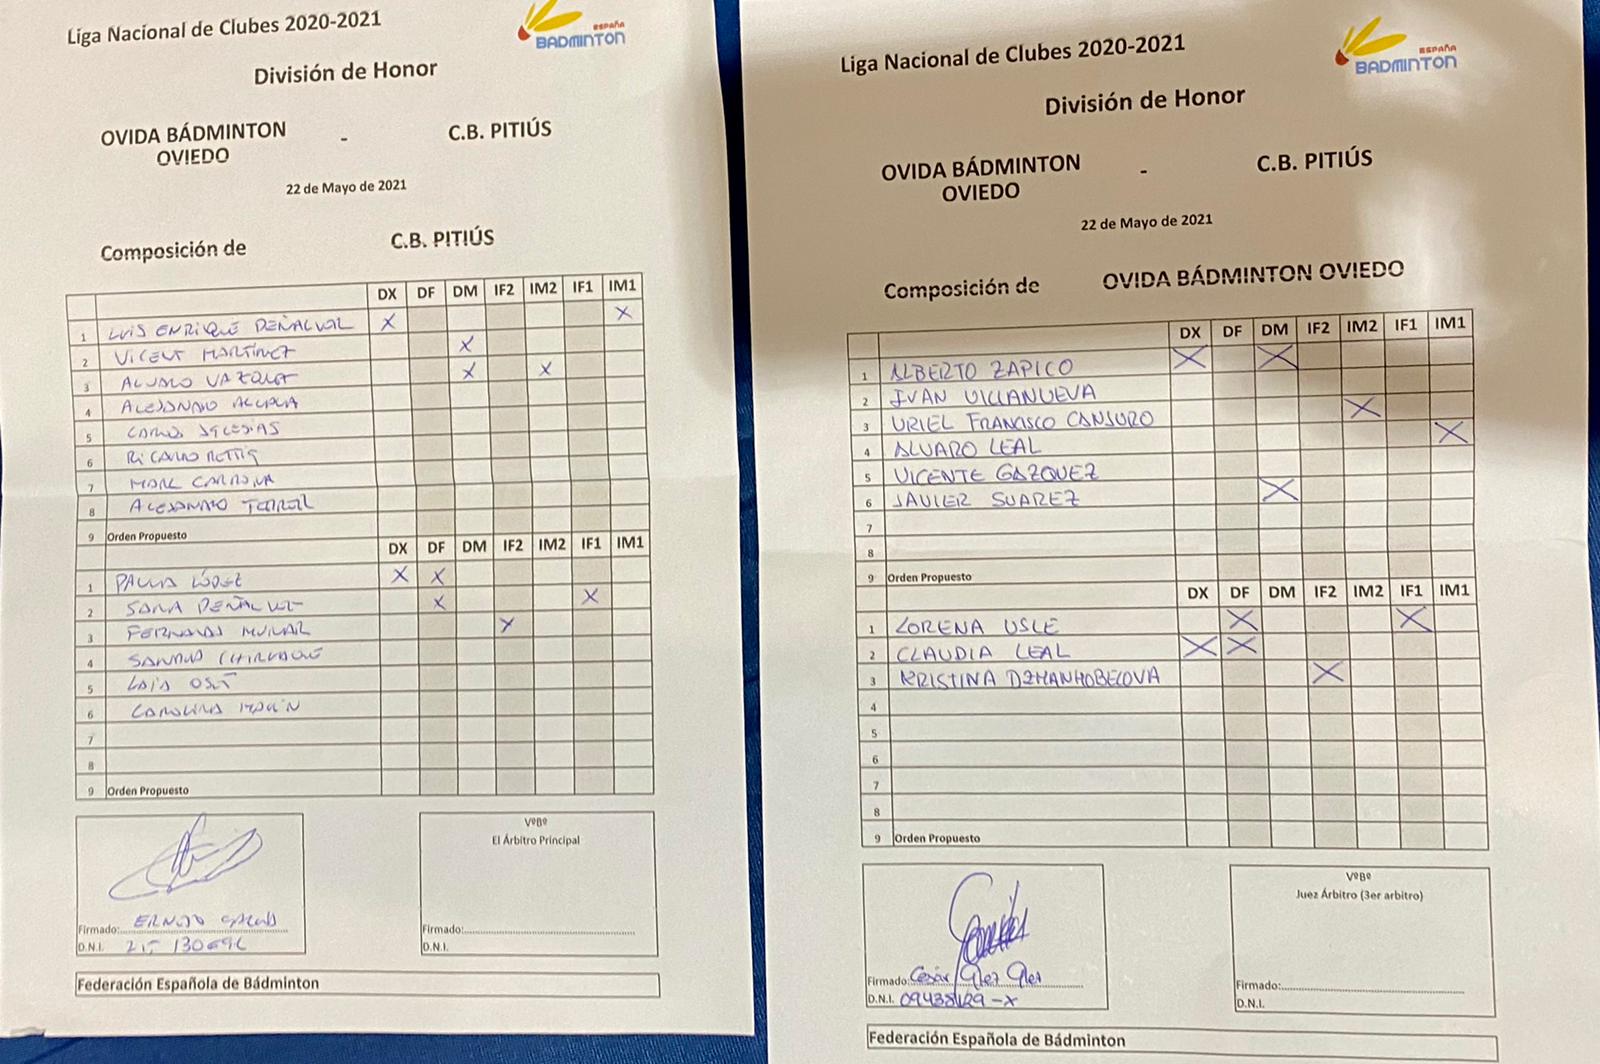 Liga Nacional de Clubes 2020-2021
ESPAÑA
BADMINTON
División de Honor
OVIDA BÁDMINTON - C.B. PITIÚS
OVIEDO
22 de Mayo de 2021
Composición de C.B. PITIÚS
DX DF DM IF2 IM2 IF1 IM1
1 LUIS ENRIQUE PEÑALVER X X
2 VICENT MARTÍNEZ X
3 ALVARO VAZQUEZ X X
4 ALEJANDRO ALCALA
5 CARLOS IGLESIAS
6 RICARDO RETTIG
7 MARC CARDONA
8 ALEJANDRO
9 Orden Propuesto
DX DF DM IF2 IM2 IF1 IM1
1 PAULA LÓPEZ X X
2 SARA PEÑALVER X X
3 FERNANDA X
4 SANDRA
5 LAIA OSET
6 CAROLINA
7
8
9 Orden Propuesto
VºBº
El Árbitro Principal
Firmado: ERNESTO
D.N.I.
Firmado:
D.N.I.
Federación Española de Bádminton
Liga Nacional de Clubes 2020-2021
ESPAÑA
BADMINTON
División de Honor
OVIDA BÁDMINTON - C.B. PITIÚS
OVIEDO
22 de Mayo de 2021
Composición de OVIDA BÁDMINTON OVIEDO
DX DF DM IF2 IM2 IF1 IM1
1 ALBERTO ZAPICO X X
2 IVAN VILLANUEVA
3 URIEL FRANCISCO CANJURO X
4 ALVARO LEAL X
5 VICENTE GAZQUEZ
6 JAVIER SUAREZ X
7
8
9 Orden Propuesto
DX DF DM IF2 IM2 IF1 IM1
1 LORENA USLE X X
2 CLAUDIA LEAL X X
3 KRISTINA DZHANHOBECOVA X
4
5
6
7
8
9 Orden Propuesto
VºBº
Juez Árbitro (3er arbitro)
Firmado: César Glez Glez
D.N.I.
Firmado:
D.N.I.
Federación Española de Bádminton